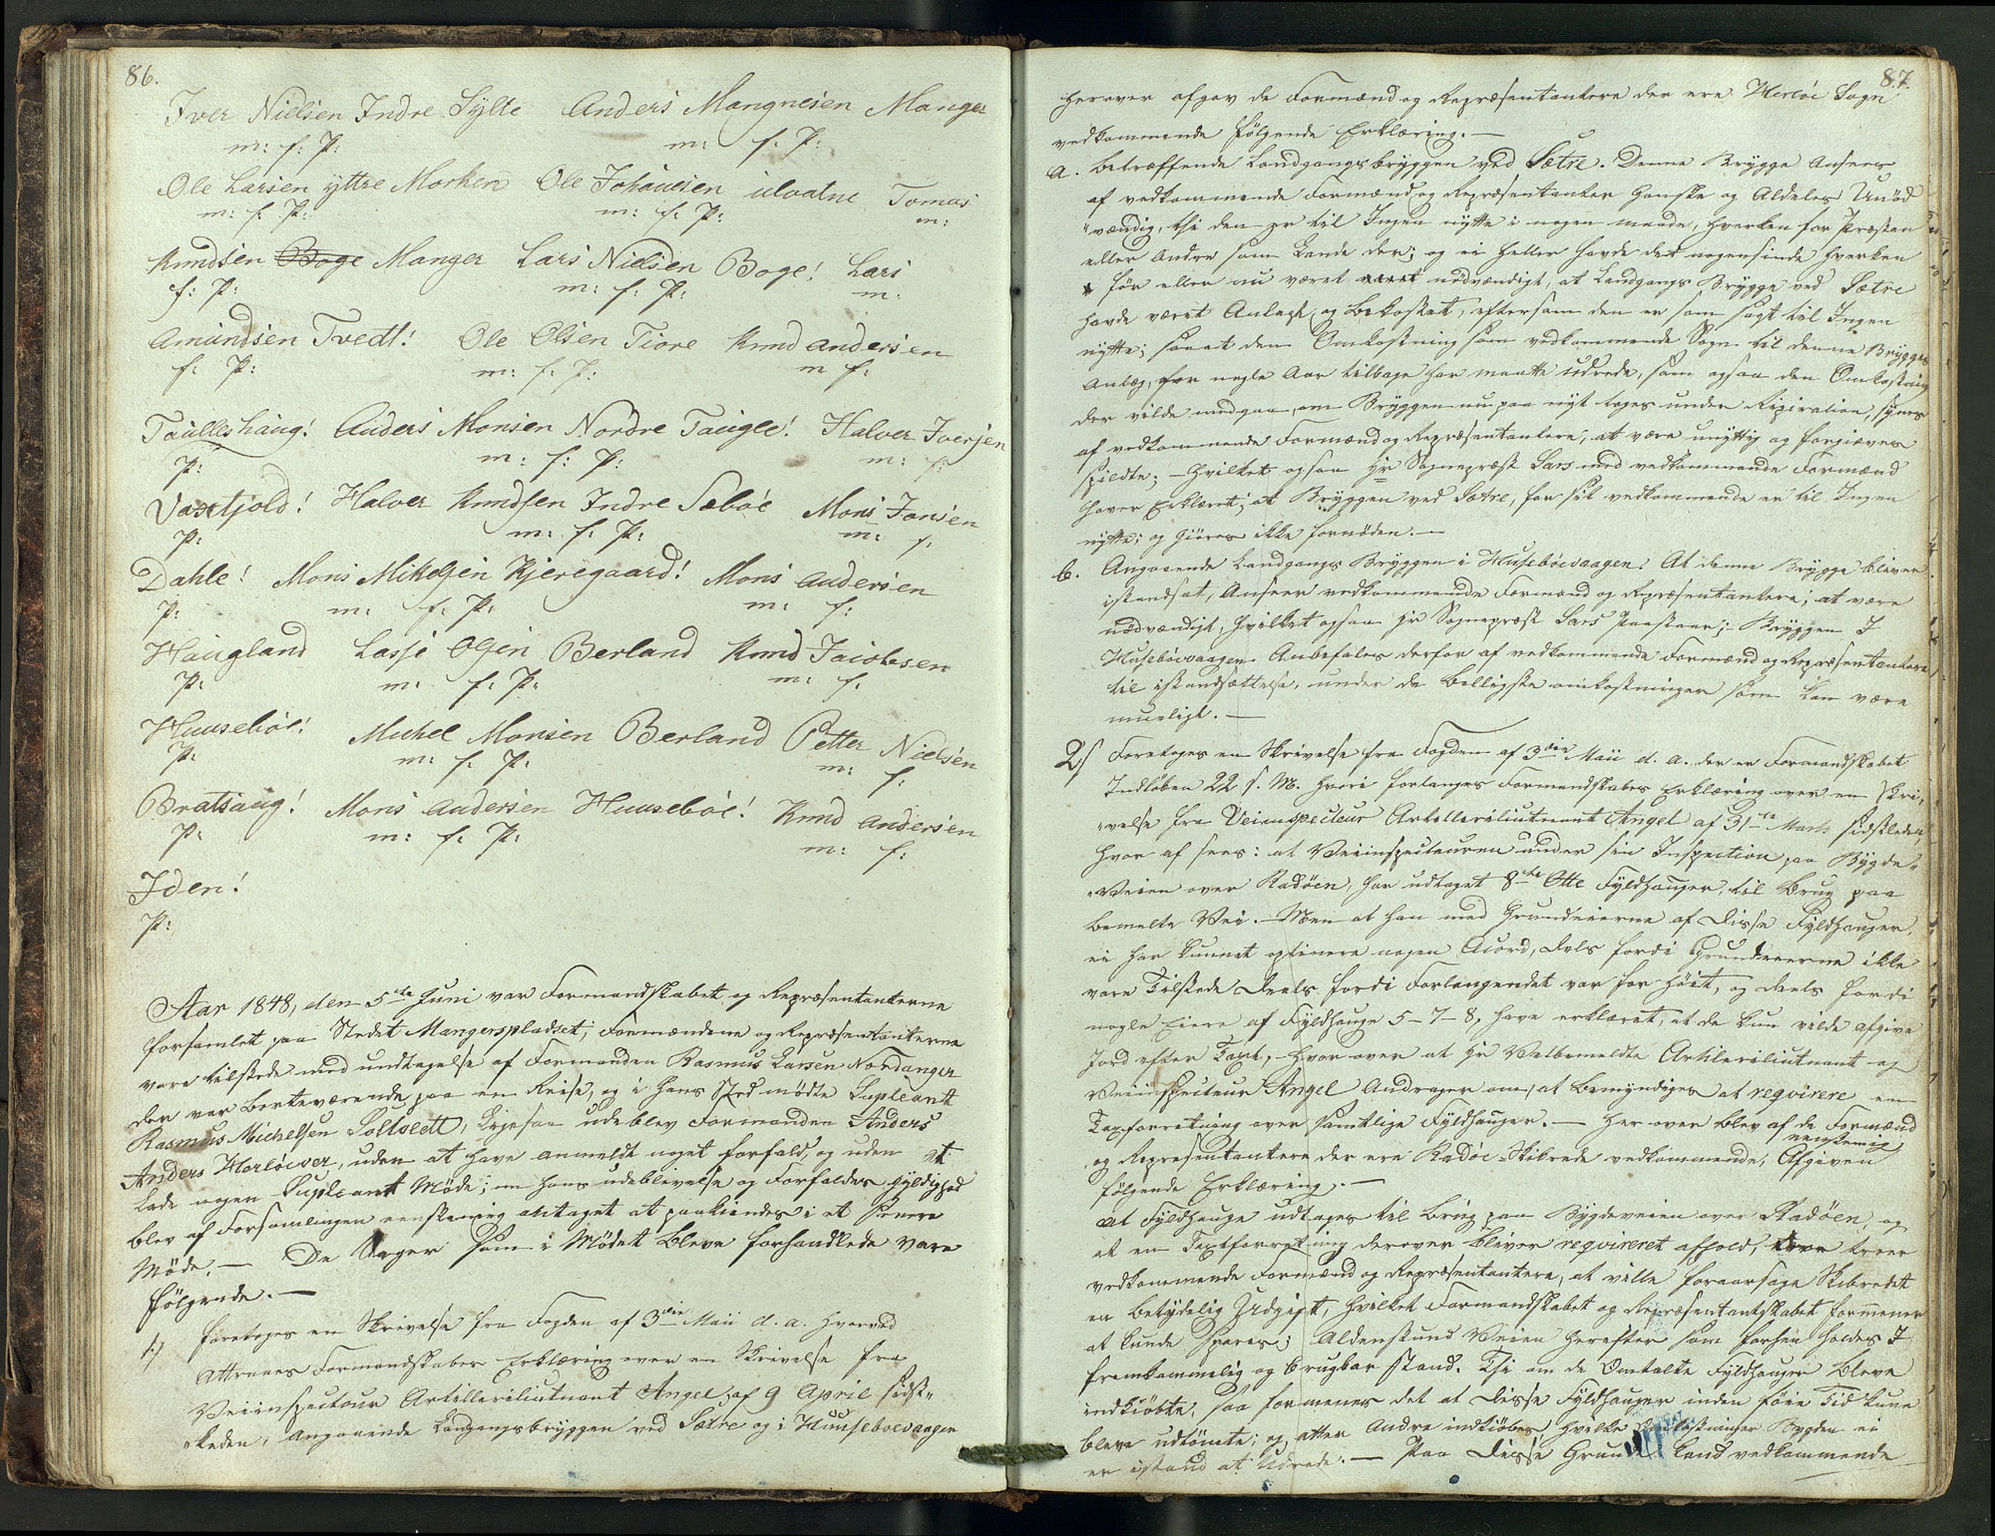 86.
Iver Nielsen Indre Sylte Anders Mangnesen Manger
m: f: P: m: f: P:
Ole Larsen yttre Morken Ole Johannesen ulvatne Tomas
m: f: P: m: f: P: m:
Knudsen Boge Manger Lars Nielsen Boge! Lars
f: P: m: f: P: m:
Amundsen Tvedt! Ole Olsen Tiore Knud andersen
f: P: m: f: P: m f:
Taulleshaug! Anders Monsen Nordre Taugle! Halver Iversen
P: m: f: P: m: f:
Vaxtjold! Halver Knudsen Indre Sæbøe Mons Jonsen
P: m: f: P: m: f:
Dahle! Mons Mikelsen Kjeregaard! Mons andersen
P: m: f: P: m: f:
Haugland Lasse Olsen Berland Knud Jacobsen
P: m: f: P: m: f:
Huusebøe! Michel Monsen Berland Petter Nielsen
P: m: f: P: m: f:
Bratsaug! Mons andersen Huusebøe! Knud andersen
P: m: f: P: m: f:
Iden!
P:
Aar 1848, den 5te Juni var Formandskabet og Repræsentanterne
forsamlet paa Stedet Mangerspladset; Formændene og Repræsentanterne
vare tilstede med undtagelse af Formanden Rasmus Larsen Nordanger
der var borteværende paa en Reise, og i hans Sted mødte Supleant
Rasmus Michelsen Soltvedt, Ligesaa udeblev Formanden Anders
Anders Herløever, uden at have anmeldt noget forfald, og uden at
lade nogen Supleant Møde; om hans udeblivelse og Forfaldes Gyldighed
blev af Forsamlingen eenstemig antaget at paakiendes i et senere
Møde. — De Sager som i Mødet bleve forhandlede vare
følgende. —
1) foretoges en Skrivelse fra Fogden af 3die Maii d. a. hvorved
attraaes Formandskabets Erklæring over en Skrivelse fra
Veiinspecteur Artilleriliutnant Angel af 9 April sidst-
leden, angaaende Landgangsbryggen ved Sætre og i Huusebøevaagen
87.
herover afgav de Formænd og Repræsentantere der ere Herløe Sogn
vedkommende følgende Erklæring. —
a. Betræffende Landgangsbryggen ved Sætre. Denne Brygge ansees
af vedkommende Formænd og Repræsentanter Ganske og Aldeles Unød-
vændig, thi den er til Ingen nytte i nogen maade, hverken for Præsten
eller Andre som Lande der; og ei heller havde det nogensinde hverken
før eller nu været nødvændigt, at Landgangs Brygge ved Sætre
havde været Anlagt og bekostet, eftersom den er som sagt til Ingen
nytte; saaat den Omkostning som vedkommende Sogn til denne Brygges
anlæg, for nogle Aar tilbage har maatte udrede, som ogsaa den Omkostning
der vilde medgaa, om Bryggen nu paa nyt toges under Riperation, synes
af vedkommende Formænd og Repræsentantere, at være unyttig og forgjæves
spildte; — hvilket ogsaa Hr Sognepræst Lars med vedkommende Formænd
haver Erklæret; at Bryggen ved Sætre, for sit vedkommende er til Ingen
nytte; og Giøres ikke fornøden. —
b. Angaaende Landgangs Bryggen i Husebøevaagen: At denne Brygge bliver
istandsat, Anseer vedkommende Formænd og Repræsentantere; at være
nødvændigt, hvilket ogsaa Hr Sognepræst Lars Paastaar; — Bryggen I
Husebøevaagen Anbefales derfor af vedkommende Formænd og Repræsentantere
til istandsættelse, under de billigste omkostninger som kan være
mueligt. —
2) Foretoges en Skrivelse fra Fogden af 3die Maii d. a. der er Formandskabet
Indløben 22 s. M. hvori forlanges Formandskabets Erklæring over en Skri-
velse fra Veiinspecteur Artilleriliutnant Angel af 31te Marts sidstleden,
hvor af sees: at Veiinspecteuren under sin Inspection paa Bygde-
Veien over Radøen, har udtaget 8te Otte Fyldhauger, til brug paa
bemelte Vei. — Men at han med Grundeierne af Disse Fyldhauger
ei har kunnet optinere nogen Acord, dels fordi Grundeierne ikke
vare Tilstede Deels fordi Forlangendet var for høit, og deels fordi
nogle Eiere af Fyldhauge 5-7-8, have erklæret, at de kun vilde afgive
Jord efter Taxt, — hvor over at Hr Velbemeldte Artilleriliutnant og
Veiinspecteur Angel Andrager om, at bemyndiges at reqvirere en
Taxforretning over samtlige Fyldhauger. — her over blev af de Formænd
og Repræsentantere der ere Radøe-Skibrede vedkommende, eenstemig Afgiven
følgende Erklæring. —
at Fyldhauge udtages til brug paa Bygdeveien over Radøen, og
at en Taxtforretning derover bliver reqvireret afhold, troer
vedkommende Formænd og Repræsentantere, at ville foraarsage Skibredet
en betydelig Udgift, hvilket Formandskabet og Repræsentantskabet formener
at kunde spares; Aldenstund Veien herefter som forhen holdes I
fremkommelig og brugbar stand. Thi om de Omtalte Fyldhauger bleve
indkiøbte, saa formenes det at Disse Fyldhauger inden føie Tid kune
bleve udtømte; og atter Andre indkiøbes, hvilke Bekostninger Bygden ei
er istand at Udrede. — Paa Disse Grunde kand vedkommende